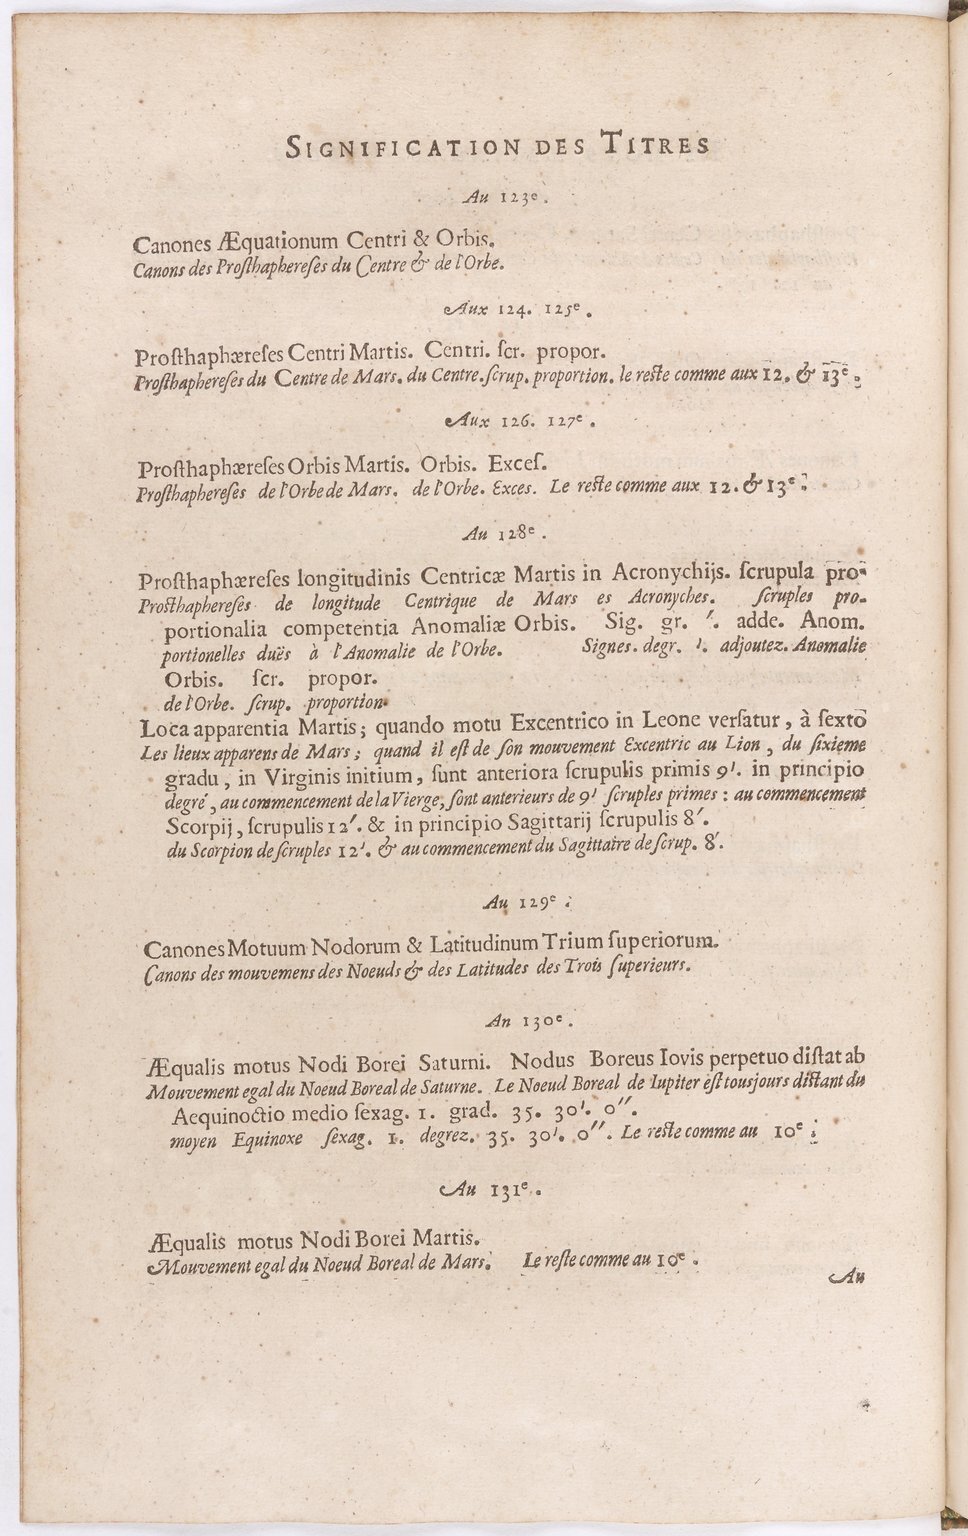 SIGNIFICATION DES TITRES
Au 123e.
Canones Æquationum Centri & Orbis.
Canons des Proſthaphereſes du Centre & de l'Orbe.
Aux 124. 125e.
Proſthaphæreſes Centri Martis. Centri. ſcr. propor.
Proſthaphereſes du Centre de Mars. du Centre. ſcrup. proportion. le reſte comme aux 12. & 13e.
Aux 126. 127e.
Proſthaphæreſes Orbis Martis. Orbis. Exceſ.
Proſthaphereſes de l'Orbe de Mars. de l'Orbe. Exces. Le reſte comme aux 12. & 13e.
Au 128e.
Proſthaphæreſes longitudinis Centricæ Martis in Acronychijs. ſcrupula pro-
Proſthaphereſes de longitude Centrique de Mars es Acronyches. ſcruples pro-
portionalia competentia Anomaliæ Orbis. Sig. gr. ′. adde. Anom.
portionelles duës à l'Anomalie de l'Orbe. Signes. degr. ′. adjoutez. Anomalie
Orbis. ſcr. propor.
de l'Orbe. ſcrup. proportion.
Loca apparentia Martis; quando motu Excentrico in Leone verſatur, à ſexto
Les lieux apparens de Mars; quand il eſt de ſon mouvement Excentric au Lion, du ſixieme
gradu, in Virginis initium, ſunt anteriora ſcrupulis primis 9′. in principio
degré, au commencement de la Vierge, ſont anterieurs de 9′ ſcruples primes: au commencement
Scorpij, ſcrupulis 12′. & in principio Sagittarij ſcrupulis 8′.
du Scorpion de ſcruples 12′. & au commencement du Sagittaire de ſcrup. 8′.
Au 129e.
Canones Motuum Nodorum & Latitudinum Trium ſuperiorum.
Canons des mouvemens des Noeuds & des Latitudes des Trois ſuperieurs.
An 130e.
Æqualis motus Nodi Borei Saturni. Nodus Boreus Iovis perpetuo diſtat ab
Mouvement egal du Noeud Boreal de Saturne. Le Noeud Boreal de Iupiter eſt tousjours diſtant du
Aequinoctio medio ſexag. 1. grad. 35. 30′. 0′′.
moyen Equinoxe ſexag. 1. degrez. 35. 30′. 0′′. Le reſte comme au 10e.
Au 131e.
Æqualis motus Nodi Borei Martis.
Mouvement egal du Noeud Boreal de Mars. Le reſte comme au 10e.
Au